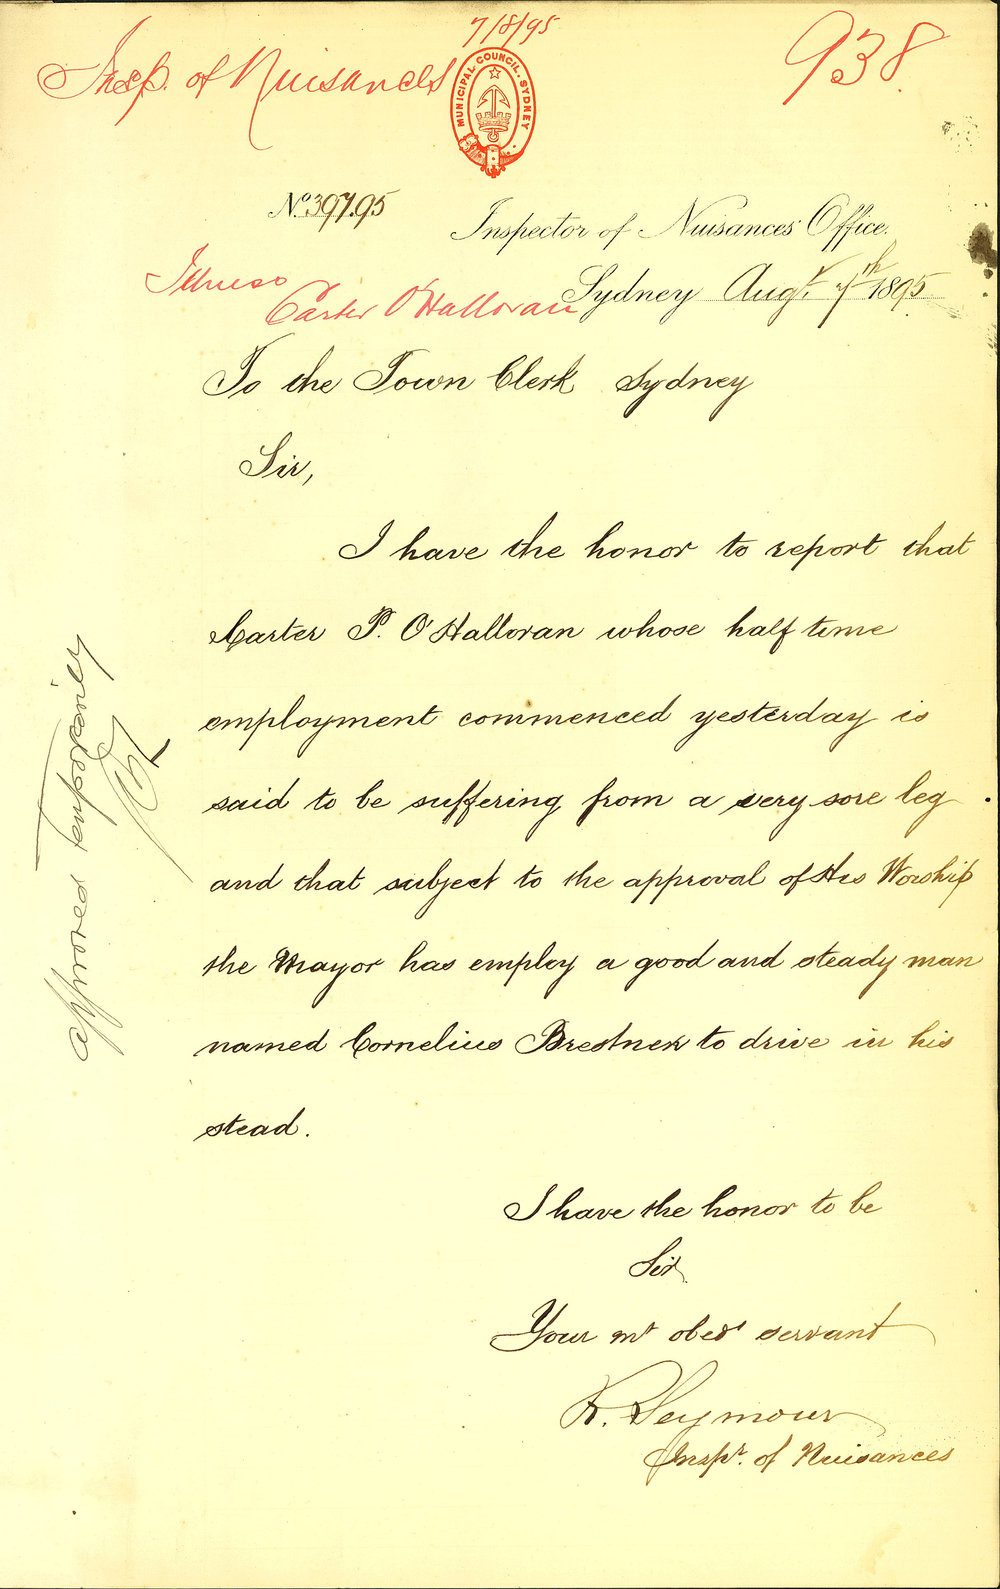 7/8/95
Insp. of Nuisances
938
MUNICIPAL COUNCIL. SYDNEY
No. 397.95
Inspector of Nuisances' Office.
Illness
Carter O'Halloran
Sydney Augt. 7th 1895
To the Town Clerk Sydney
Sir,
I have the honor to report that
Carter P. O'Halloran whose half time
employment commenced yesterday is
said to be suffering from a very sore leg
and that subject to the approval of His Worship
the Mayor has employ a good and steady man
named Cornelius Bresnen to drive in his
stead.
I have the honor to be
Sir
Your mt obedt servant
R. Seymour
Inspr. of Nuisances
approved temporarily